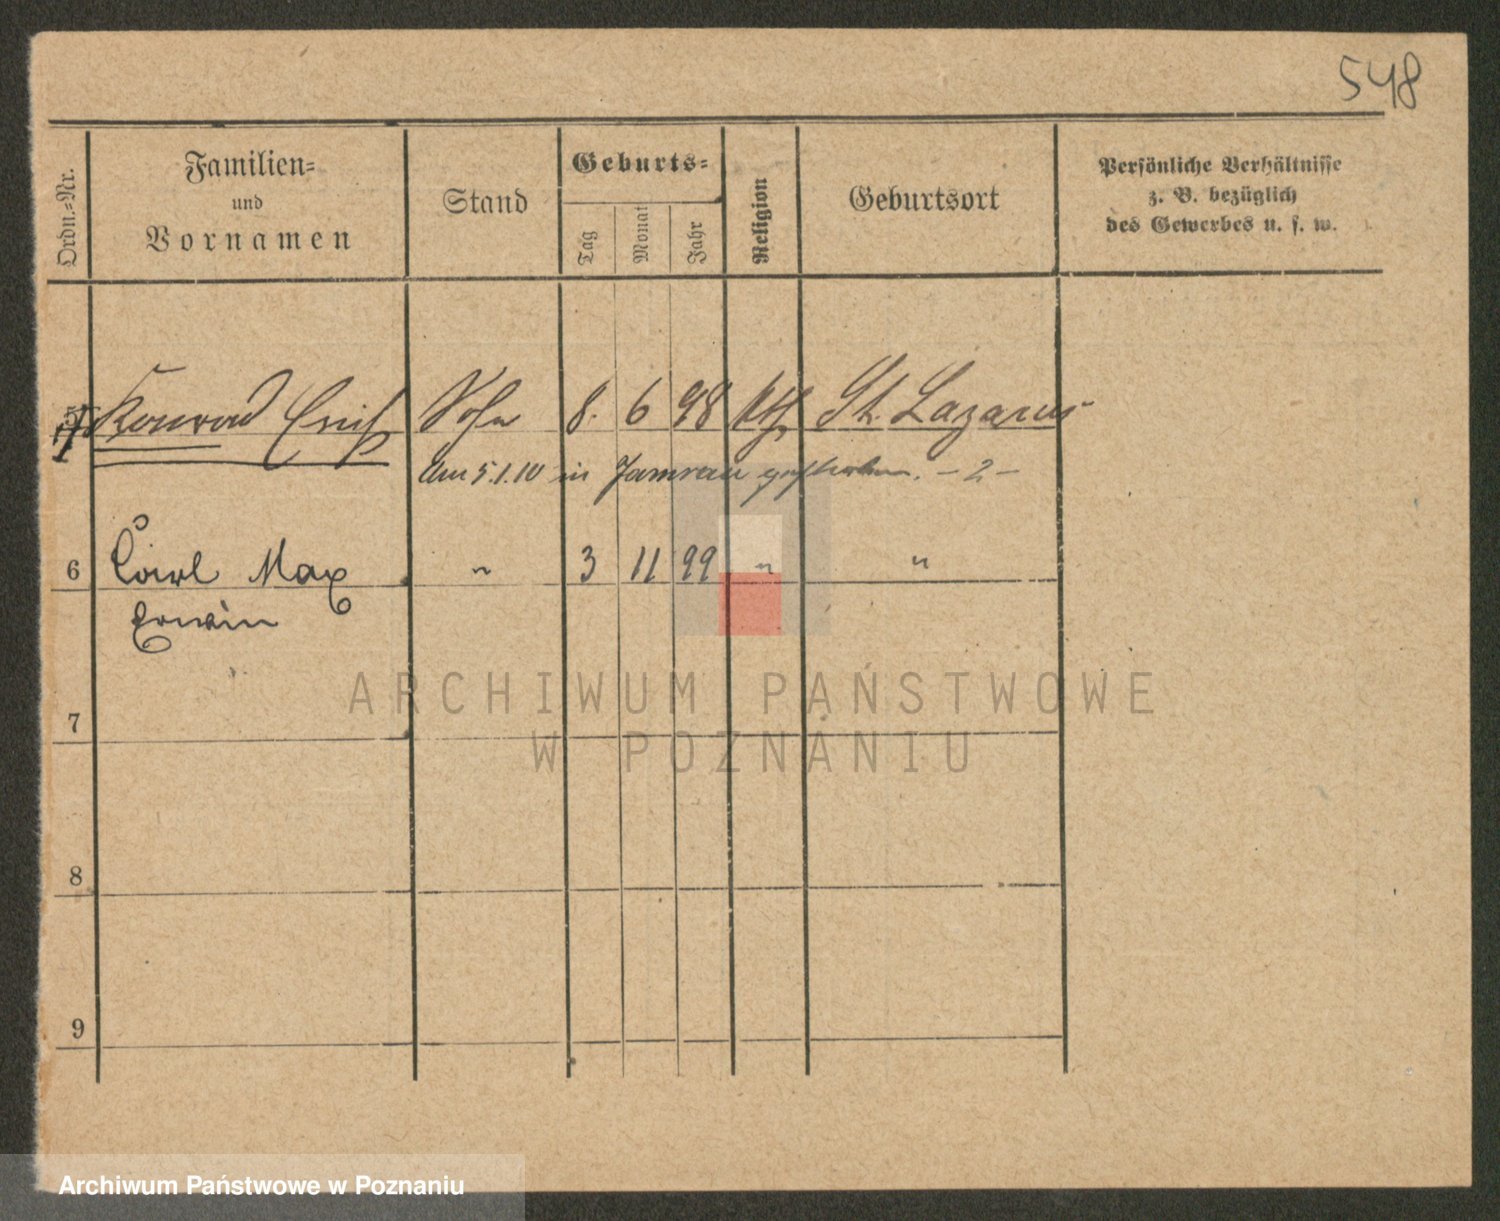 548
Ordn.-Nr.
Familien-
und
Vornamen
Stand
Geburts-
Tag
Monat
Jahr
Religion
Geburtsort
Persönliche Verhältnisse
z. B. bezüglich
des Gewerbes u. s. w.
Konrad Erich Sohn 8. 6 98 kth. St. Lazarus
Am 5.1.10 in Jamrau gestorben. – 2 –
6 Carl Max " 3 11 99 " "
Erwin
7
8
9
ARCHIWUM PAŃSTWOWE
W POZNANIU
Archiwum Państwowe w Poznaniu